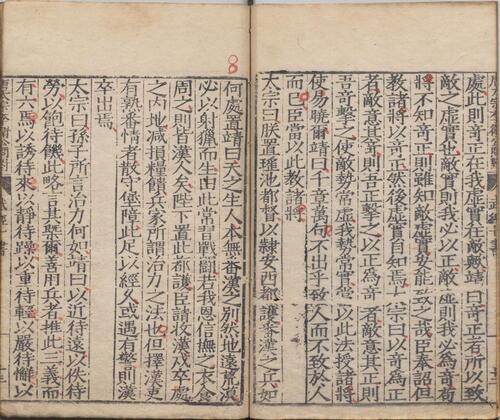 處此則奇正在我虛實在敵歟靖曰奇正者所以致
敵之虛實也敵實則我必以正敵虛則我必為奇苟
將不知奇正則雖知敵虛實安能致之哉臣奉詔但
教諸將以奇正然後虛實自知焉太宗曰以奇為正
者敵意其奇則吾正擊之以正為奇者敵意其正則
吾奇擊之使敵勢常虛我勢常實當以此法授諸將
使易曉爾靖曰千章萬句不出乎致人而不致於人
而已臣當以此教諸將
太宗曰朕置瑤池都督以隸安西都護番漢之兵如
8
何處置靖曰天之生人本無番漢之別然地遠荒漠
必以射獵而生由此常習戰鬬若我恩信撫之衣食
周之則皆漢人矣陛下置此都護臣請收漢戍卒處
之內地減損糧饋兵家所謂治力之法也但擇漢吏
有熟番情者散守堡障此足以經久或遇有警則漢
卒出焉
太宗曰孫子所言治力何如靖曰以近待遠以佚待
勞以飽待飢此略言其槩爾善用兵者推此三義而
有六焉以誘待來以靜待躁以重待輕以嚴待懈以